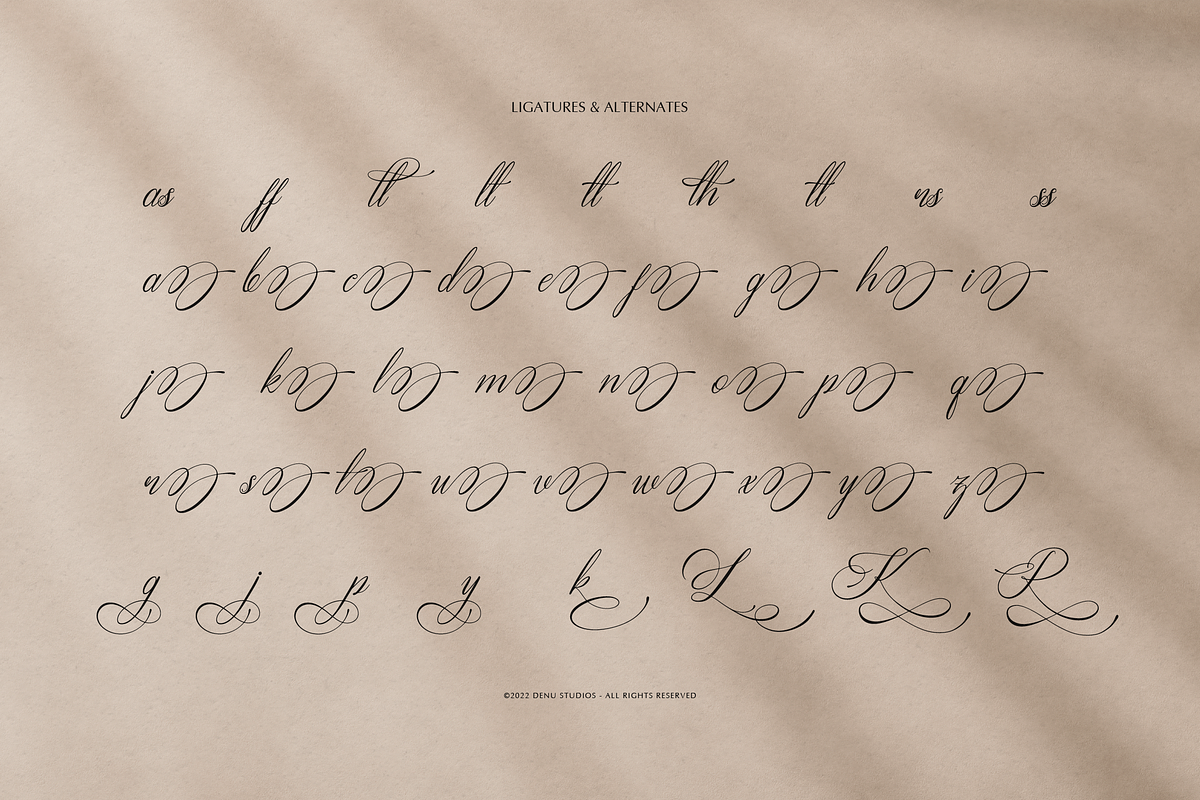 LIGATURES & ALTERNATES
as ff tt lt tt th tt rs ss
a b c d e f g h i
j k l m n o p q
r s t u v w x y z
g j p y k L K R
©2022 DENU STUDIOS - ALL RIGHTS RESERVED